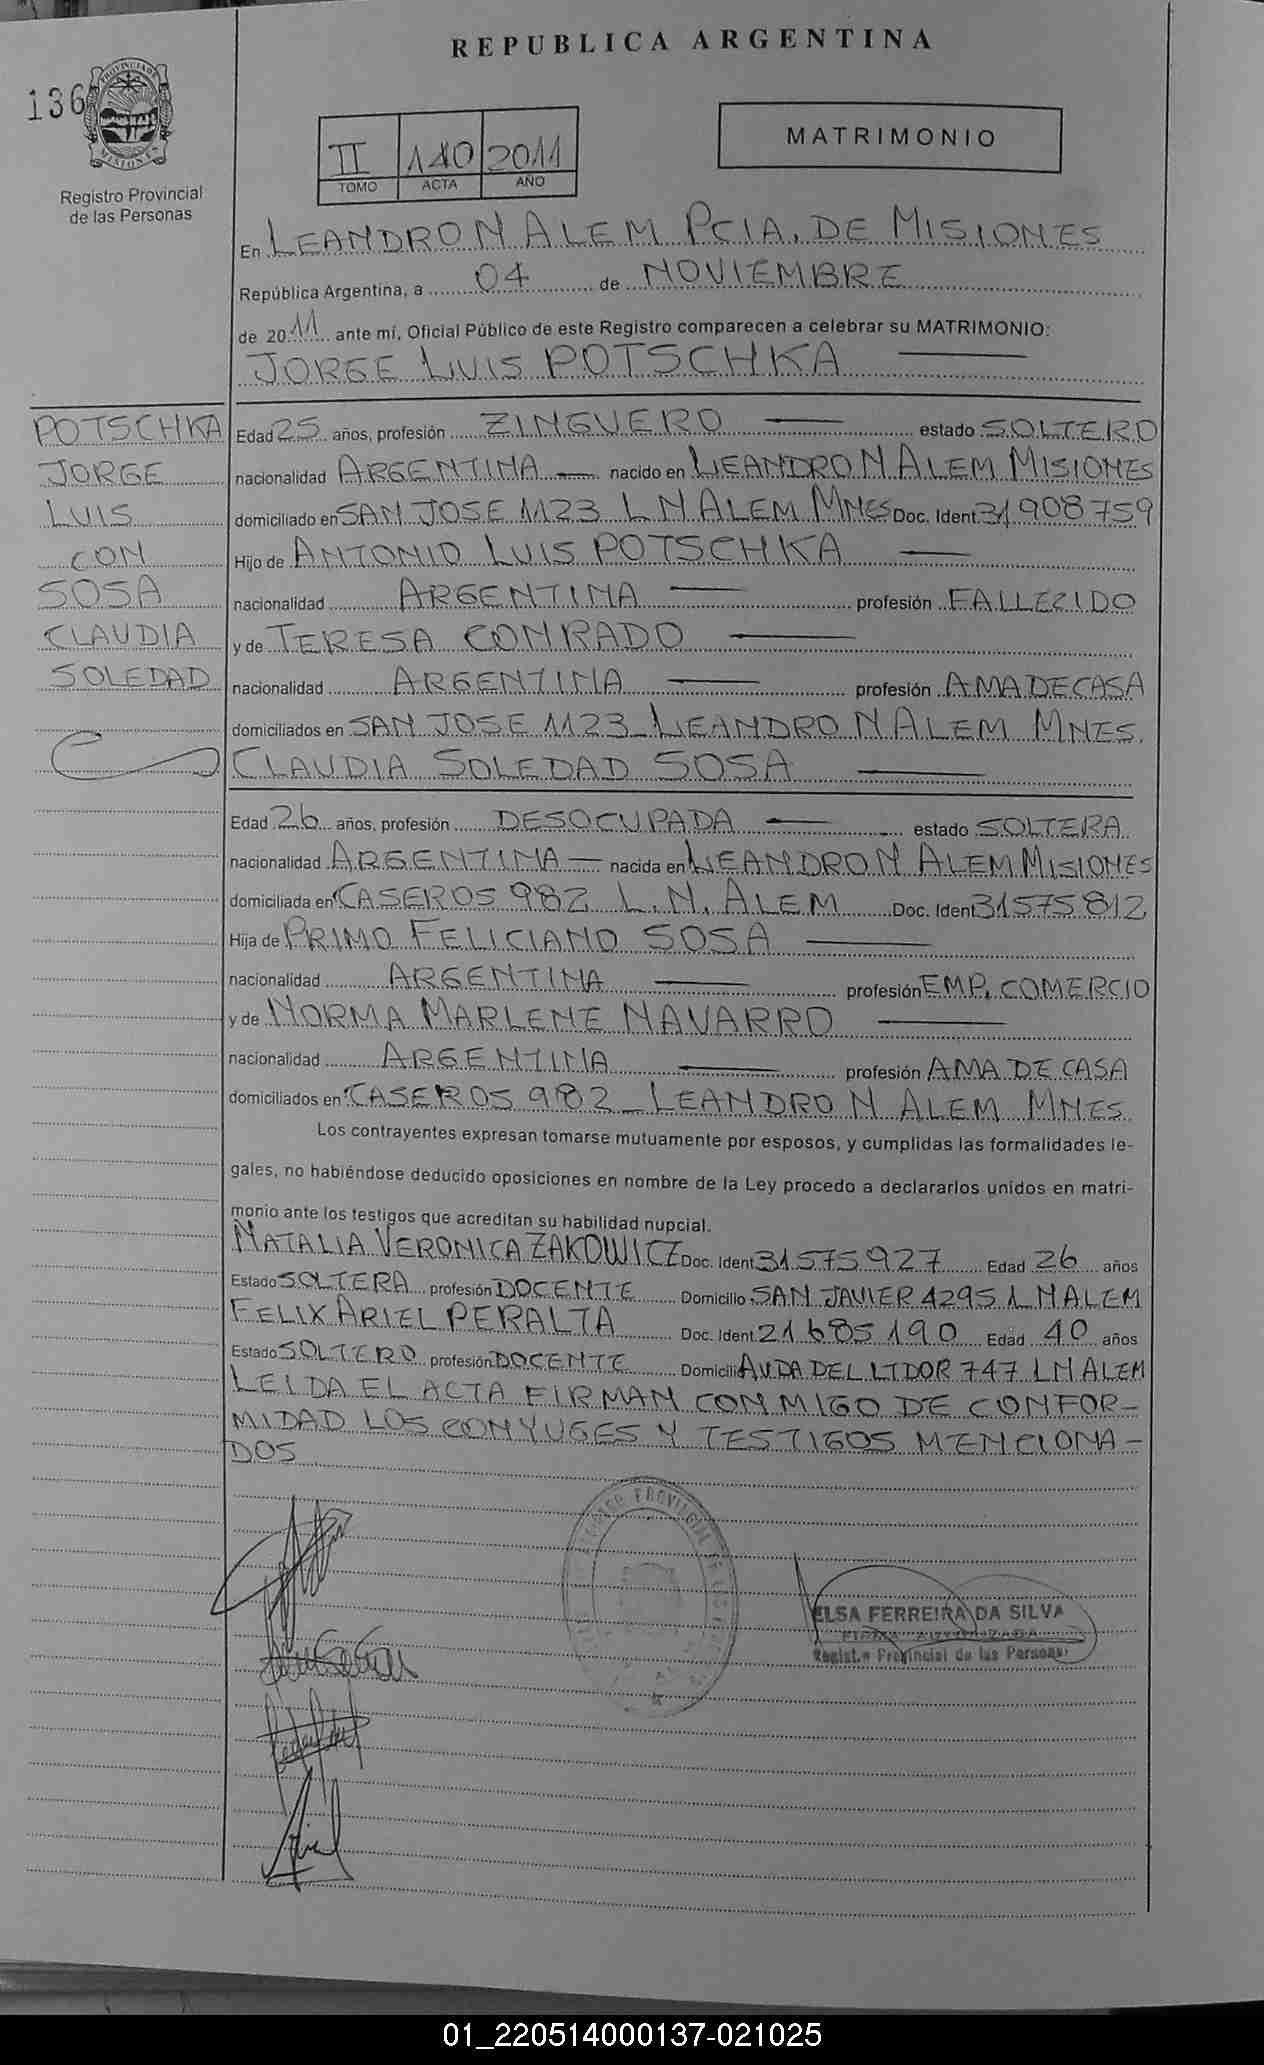 REPUBLICA ARGENTINA
136
PROVINCIA DE
MISIONES
Registro Provincial
de las Personas
II 140 2011
TOMO ACTA AÑO
MATRIMONIO
En LEANDRO N ALEM PCIA. DE MISIONES
República Argentina, a 04 de NOVIEMBRE
de 2011 ante mí, Oficial Público de este Registro comparecen a celebrar su MATRIMONIO:
JORGE LUIS POTSCHKA
POTSCHKA
JORGE
LUIS
CON
SOSA
CLAUDIA
SOLEDAD
Edad 25 años, profesión ZINGUERO estado SOLTERO
nacionalidad ARGENTINA nacido en LEANDRO N ALEM MISIONES
domiciliado en SAN JOSE 1123 L N ALEM MNES Doc. Ident. 31908759
Hijo de ANTONIO LUIS POTSCHKA
nacionalidad ARGENTINA profesión FALLECIDO
y de TERESA CONRADO
nacionalidad ARGENTINA profesión AMA DE CASA
domiciliados en SAN JOSE 1123 LEANDRO N ALEM MNES.
CLAUDIA SOLEDAD SOSA
Edad 26 años, profesión DESOCUPADA estado SOLTERA
nacionalidad ARGENTINA nacida en LEANDRO N ALEM MISIONES
domiciliada en CASEROS 982 L. N. ALEM Doc. Ident 31575812
Hija de PRIMO FELICIANO SOSA
nacionalidad ARGENTINA profesión EMP. COMERCIO
y de NORMA MARLENE NAVARRO
nacionalidad ARGENTINA profesión AMA DE CASA
domiciliados en CASEROS 982 LEANDRO N ALEM MNES
Los contrayentes expresan tomarse mutuamente por esposos, y cumplidas las formalidades le-
gales, no habiéndose deducido oposiciones en nombre de la Ley procedo a declararlos unidos en matri-
monio ante los testigos que acreditan su habilidad nupcial.
NATALIA VERONICA ZAKOWICZ Doc. Ident 31575927 Edad 26 años
Estado SOLTERA profesión DOCENTE Domicilio SAN JAVIER 4295 L N ALEM
FELIX ARIEL PERALTA Doc. Ident 21685190 Edad 40 años
Estado SOLTERO profesión DOCENTE Domicili AVDA DEL LTDOR 747 L N ALEM
LEIDA EL ACTA FIRMAN CONMIGO DE CONFOR-
MIDAD LOS CONYUGES Y TESTIGOS MENCIONA-
DOS
ELSA FERREIRA DA SILVA
FIRMA AUTORIZADA
Regist.o Provincial de las Personas
01_220514000137-021025